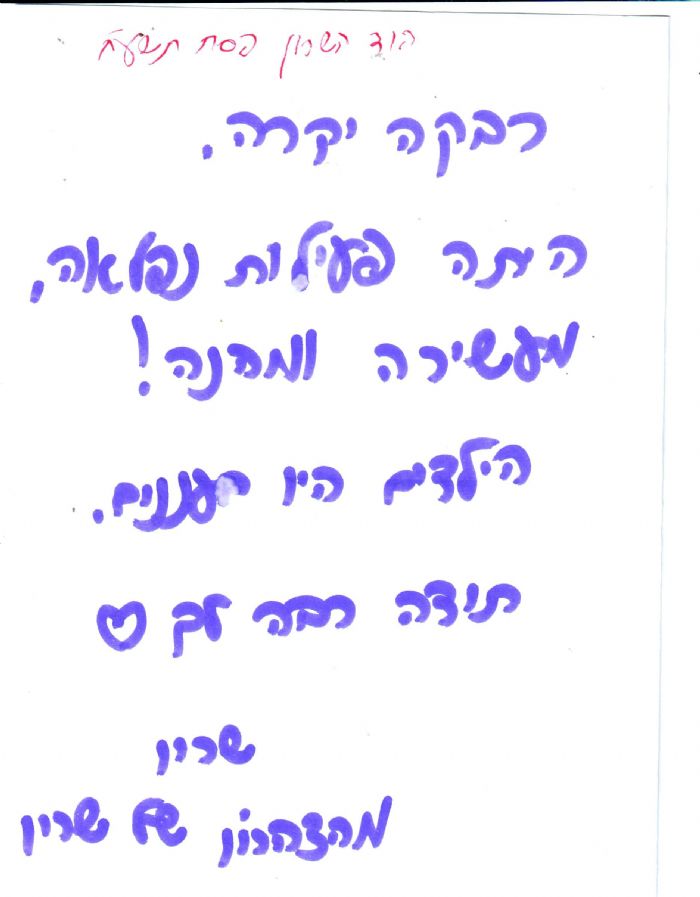 הוד השרון פסח תשע"ח
רבקה יקרה.
היתה פעילות נפלאה,
מעשירה ומהנה!
הילדים היו רעננים.
תודה רבה לך ♡
שרין
מהצהרון של שרין